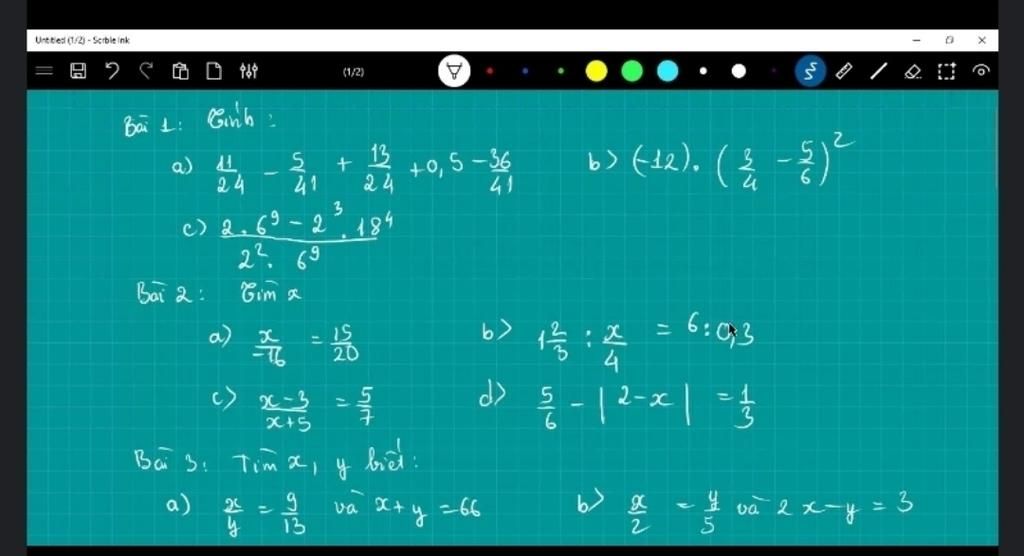 Untitled (1/2) - Scrble Ink
(1/2)
Bài 1: Tính:
a) 11/24 - 5/41 + 13/24 + 0,5 - 36/41 b> (-12). (3/4 - 5/6)²
c) (2.6⁹ - 2³.18⁴)/(2².6⁹)
Bài 2: Tìm x
a) x/-16 = 15/20 b> 1 2/3 : x/4 = 6:0,3
c> (x-3)/(x+5) = 5/7 d> 5/6 - |2-x| = 1/3
Bài 3: Tìm x, y biết:
a) x/y = 9/13 và x+y = 66 b> x/2 = y/5 và 2x-y = 3